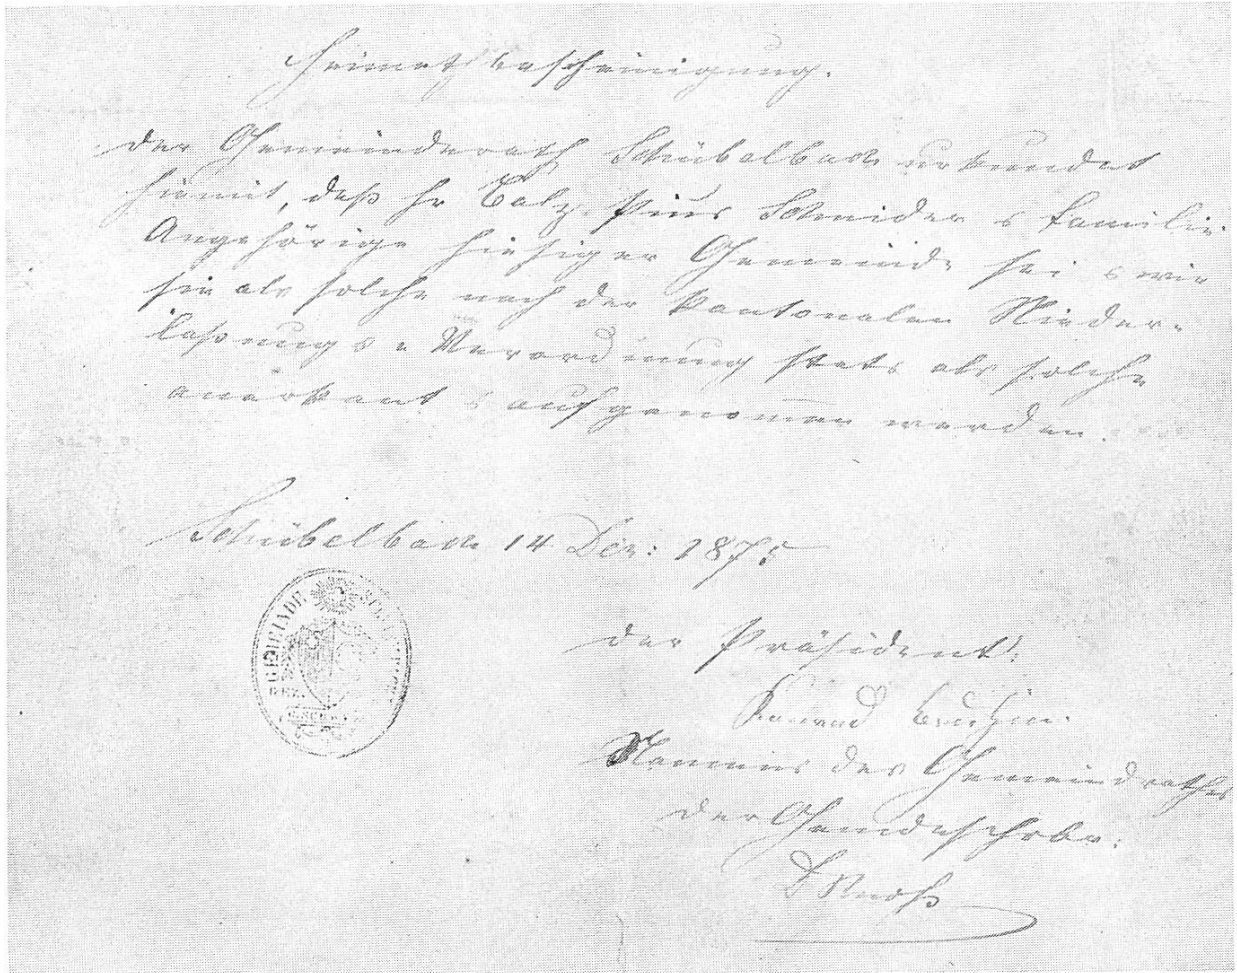 Heimathbescheinigung.
Der Gemeinderath Schübelbach urkundet
hiemit, daß Hr Balz. Pius Schnider & Familie
Angehörige hiesiger Gemeinde sei & wir
sie als solche nach der kantonalen Nieder-
laßungs-Verordnung stets als solche
anerkant & aufgenomen werden.
Schübelbach 14 Dez: 187
GEMEINDE
der Präsident:
Konrad Bruhin.
Namens des Gemeindrathes
der Gemdeschrbr: